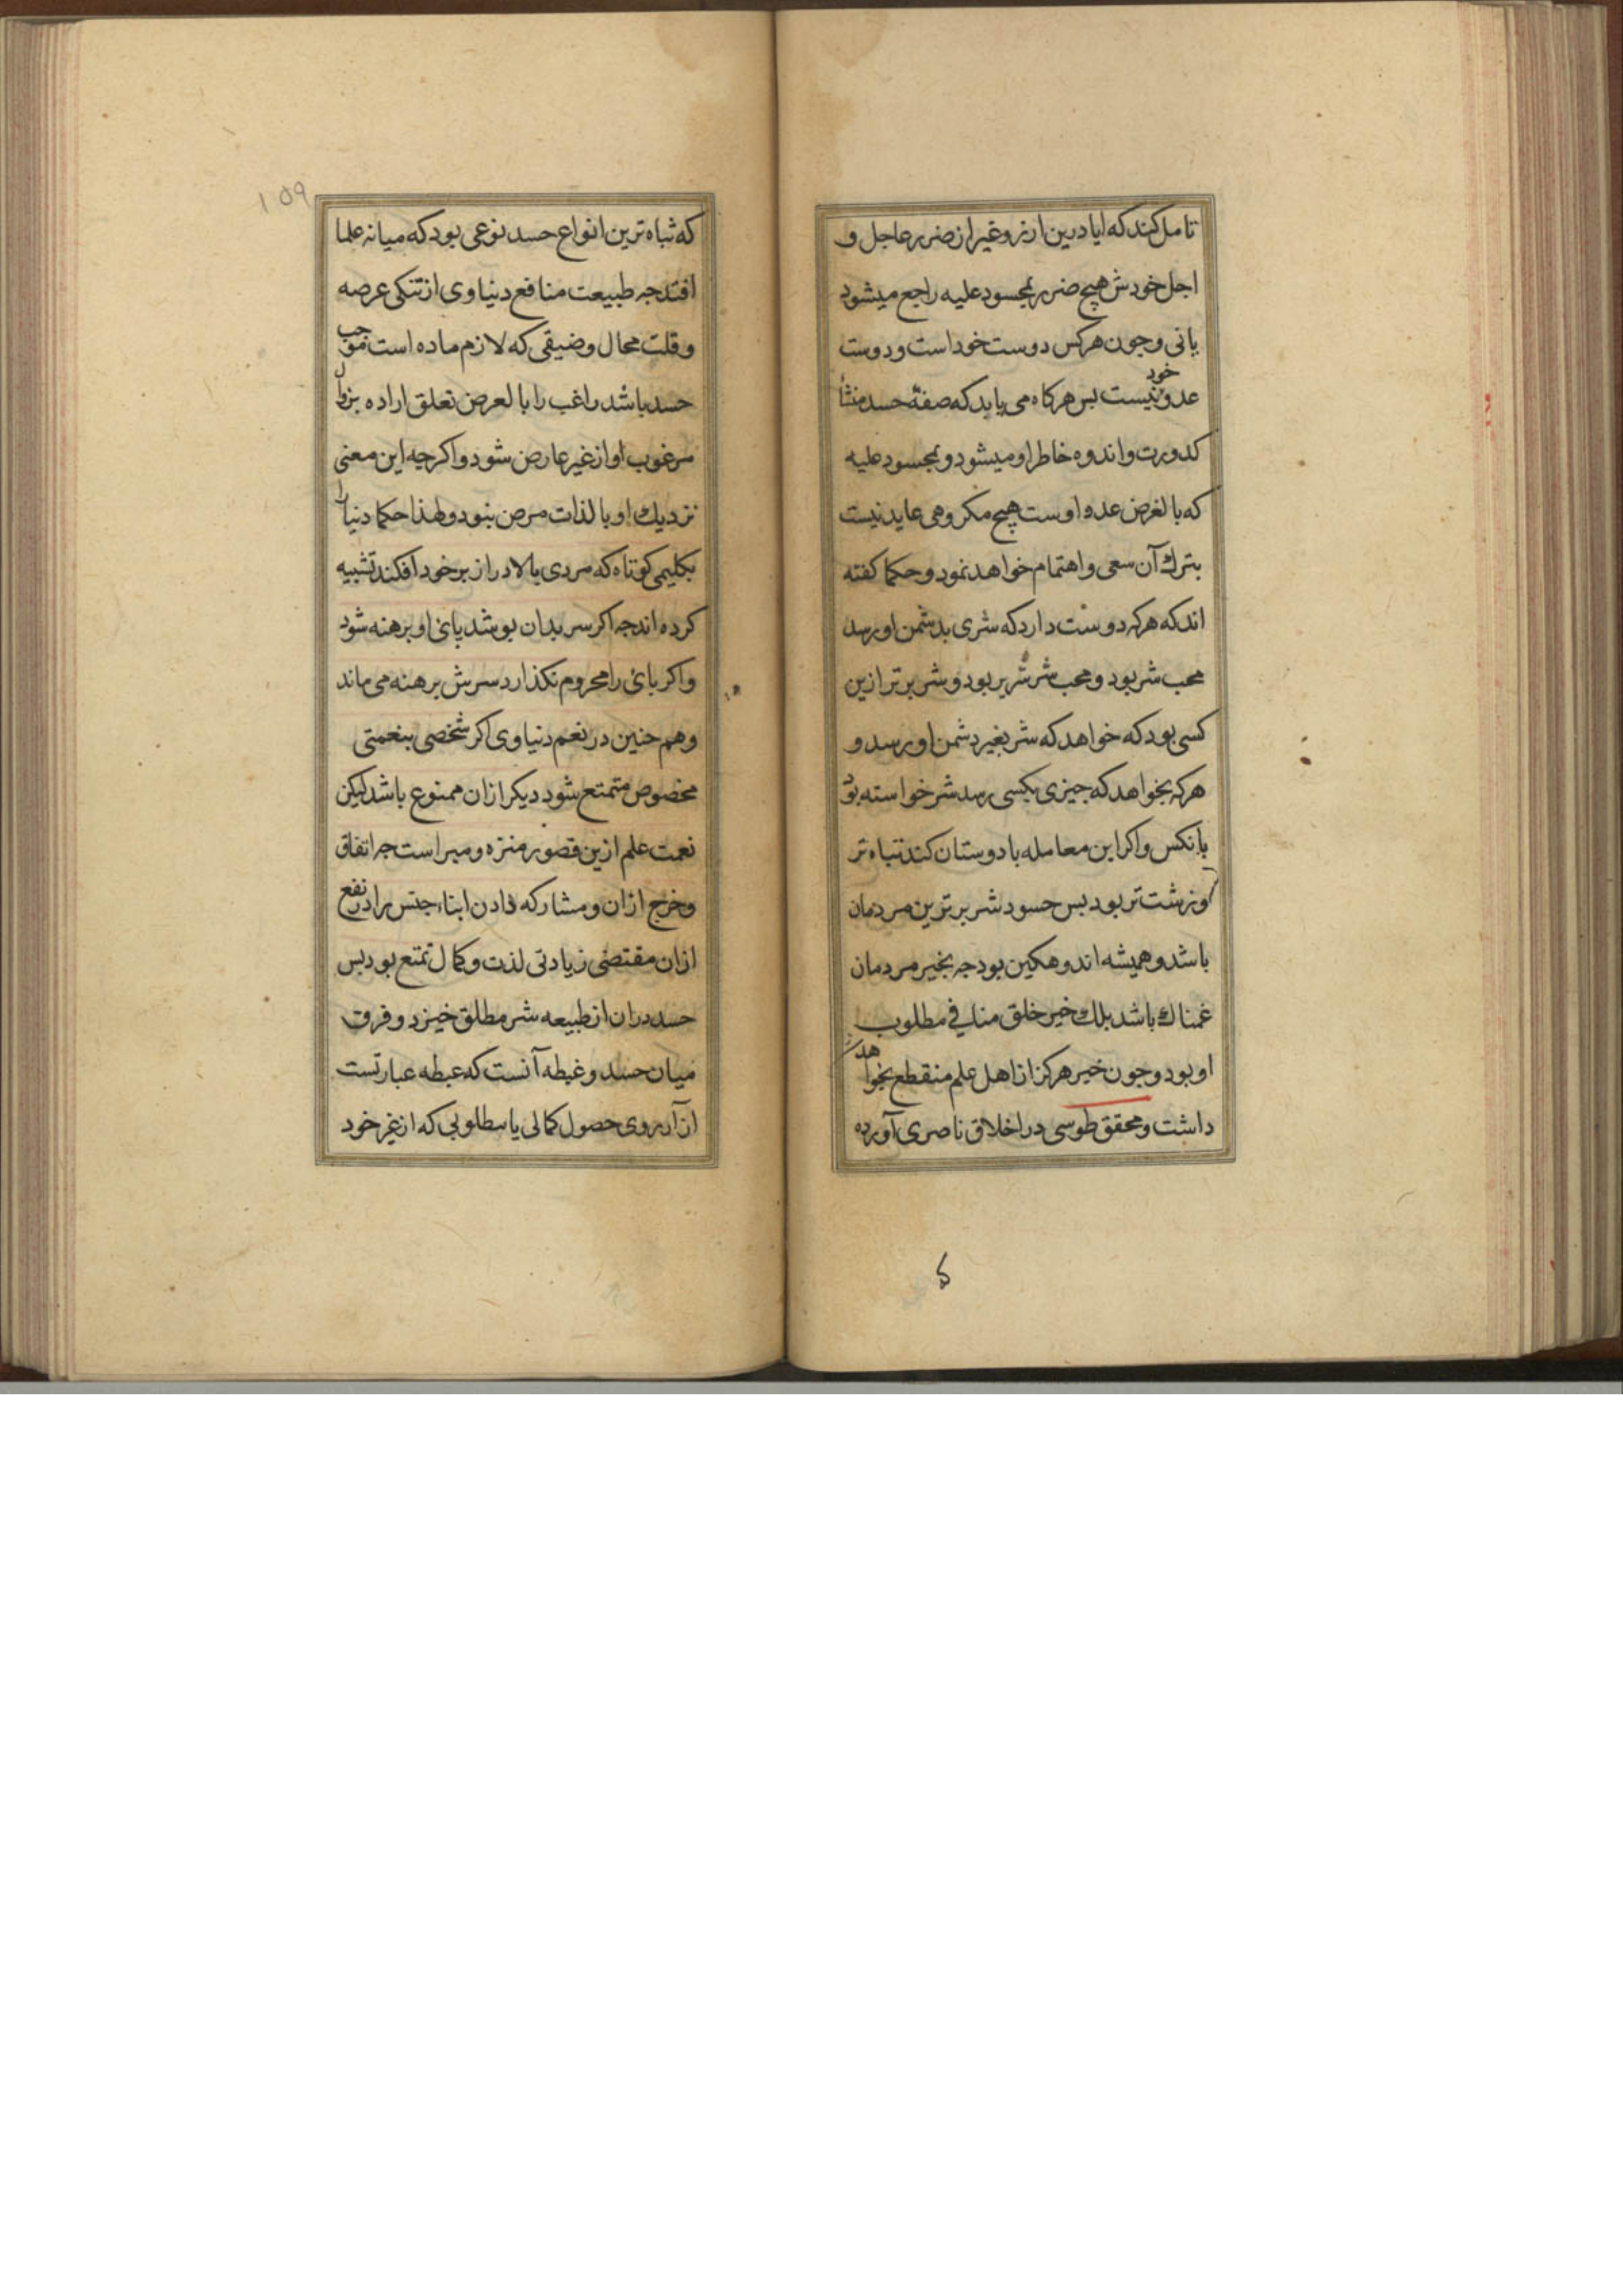 تامل کند که ایا درین ارزو غیر از ضرر عاجل و
اجل خودش هیچ ضرر بمحسود علیه راجع میشود
یا نی و جون هرکس دوست خود است و دوست
عدو خود نیست بس هرکاه می یابد که صفة حسد منشأ
کدورت و اندوه خاطر او میشود و بمحسود علیه
که بالغرض عدو اوست هیچ مکروهی عاید نیست
بترك آن سعی و اهتمام خواهد نمود و حکما کفته
اند که هرکه دوست دارد که شری بدشمن او رسد
محب شر بود و محب شر شریر بود و شریر تر ازین
کسی بود که خواهد که شر بغیر دشمن او رسد و
هرکه نخواهد که جیزی بکسی رسد شر خواسته بود
بانکس و اکر این معامله با دوستان کند تباه تر
و زشت تر بود بس حسود شریر ترین مردمان
باشد و همیشه اندوهکین بود جه بخیر مردمان
غمناك باشد بلك خیر خلق منافی مطلوب
او بود و جون خیر هرکز از اهل علم منقطع نخواهد
داشت و محقق طوسی در اخلاق ناصری آورده
۱۵۹
که تباه ترین انواع حسد نوعی بود که میانه علما
افتد جه طبیعت منافع دنیاوی از تنکی عرصه
و قلت مجال و ضیقی که لازم ماده است موجب
حسد باشد راغب را بالعرض تعلق اراده بزوال
مرغوب او از غیر عارض شود و اکرجه این معنی
نزدیك او بالذات مرض نبود و لهذا حکما دنیا را
بکلیمی کوتاه که مردی بالا دراز بر خود افکند تشبیه
کرده اند جه اکر سر بدان بوشد پای او برهنه شود
و اکر بای را محروم نکذارد سرش برهنه می ماند
و هم جنین در نعم دنیاوی اکر شخصی بنعمتی
مخصوص متمتع شود دیکر ازان ممنوع باشد لیکن
نعمت علم ازین قصور منزه و مبرا است جه انفاق
و خرج ازان و مشارکه دادن ابناء جنس را در نفع
ازان مقتضی زیادتی لذت و کمال تمتع بود بس
حسد دران از طبیعه شر مطلق خیزد و فرق
میان حسد و غبطه آنست که غبطه عبارتست
از آرزوی حصول کمالی یا مطلوبی که از غیر خود